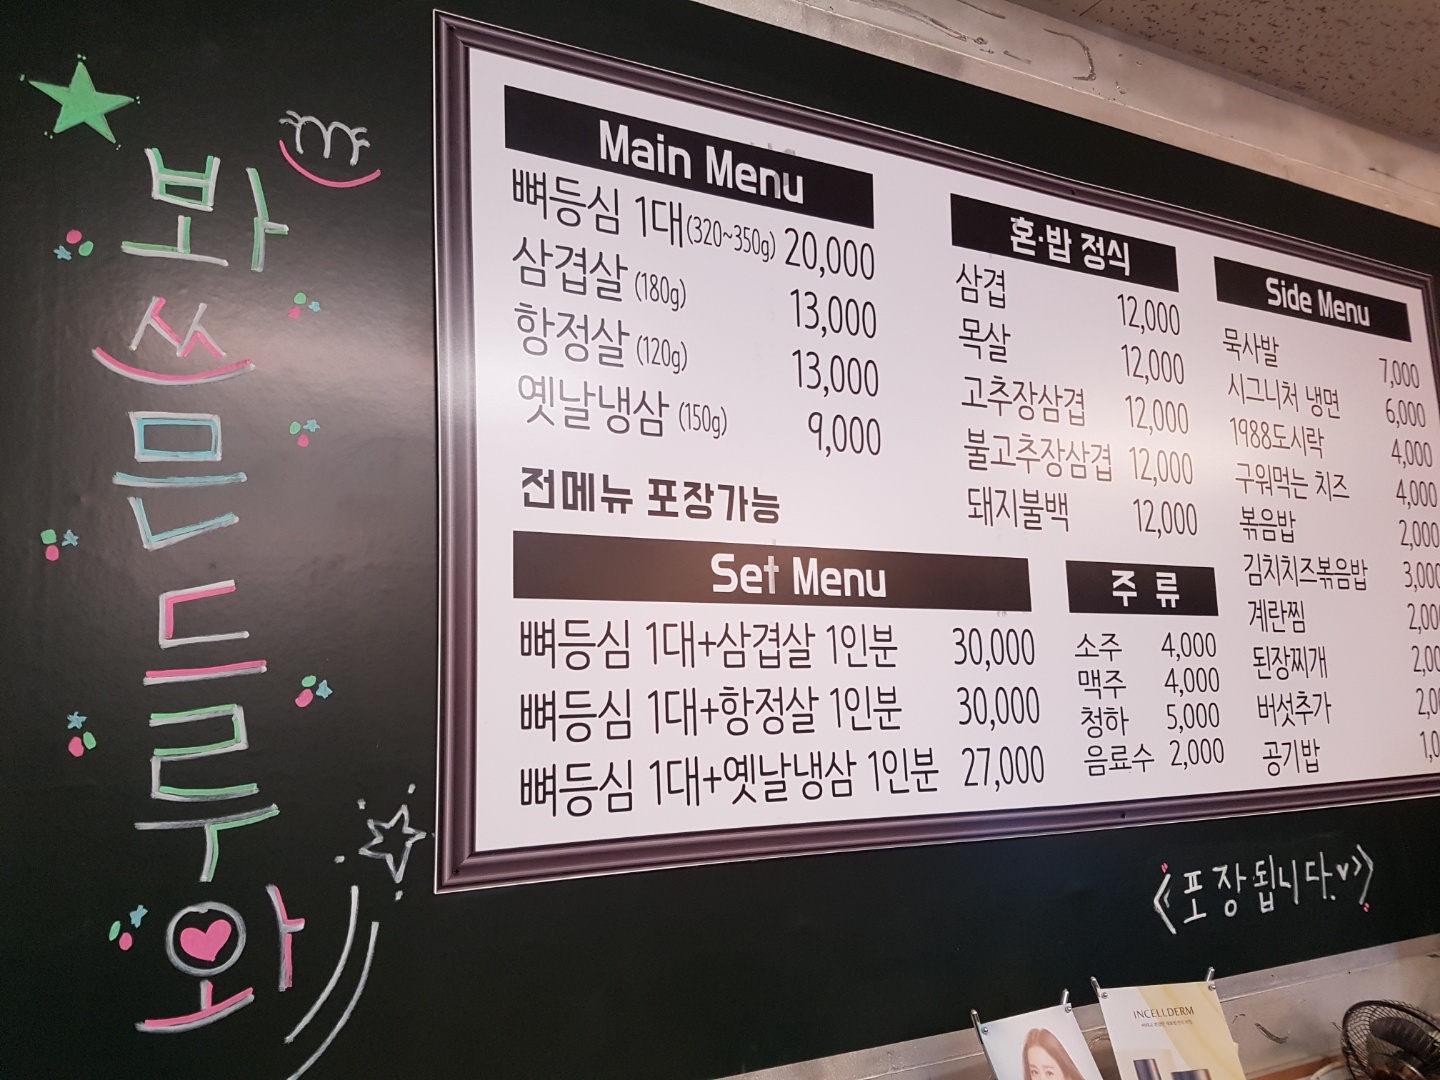 봐
쓰
믄
드
루
와
Main Menu
뼈등심 1대(320~350g) 20,000
삼겹살 (180g) 13,000
항정살 (120g) 13,000
옛날냉삼 (150g) 9,000
전메뉴 포장가능
Set Menu
뼈등심 1대+삼겹살 1인분 30,000
뼈등심 1대+항정살 1인분 30,000
뼈등심 1대+옛날냉삼 1인분 27,000
혼·밥 정식
삼겹 12,000
목살 12,000
고추장삼겹 12,000
불고추장삼겹 12,000
돼지불백 12,000
주 류
소주 4,000
맥주 4,000
청하 5,000
음료수 2,000
Side Menu
묵사발 7,000
시그니처 냉면 6,000
1988도시락 4,000
구워먹는 치즈 4,000
볶음밥 2,000
김치치즈볶음밥 3,000
계란찜 2,00
된장찌개 2,00
버섯추가 2,0
공기밥 1,0
《포장됩니다♥》
INCELLDERM